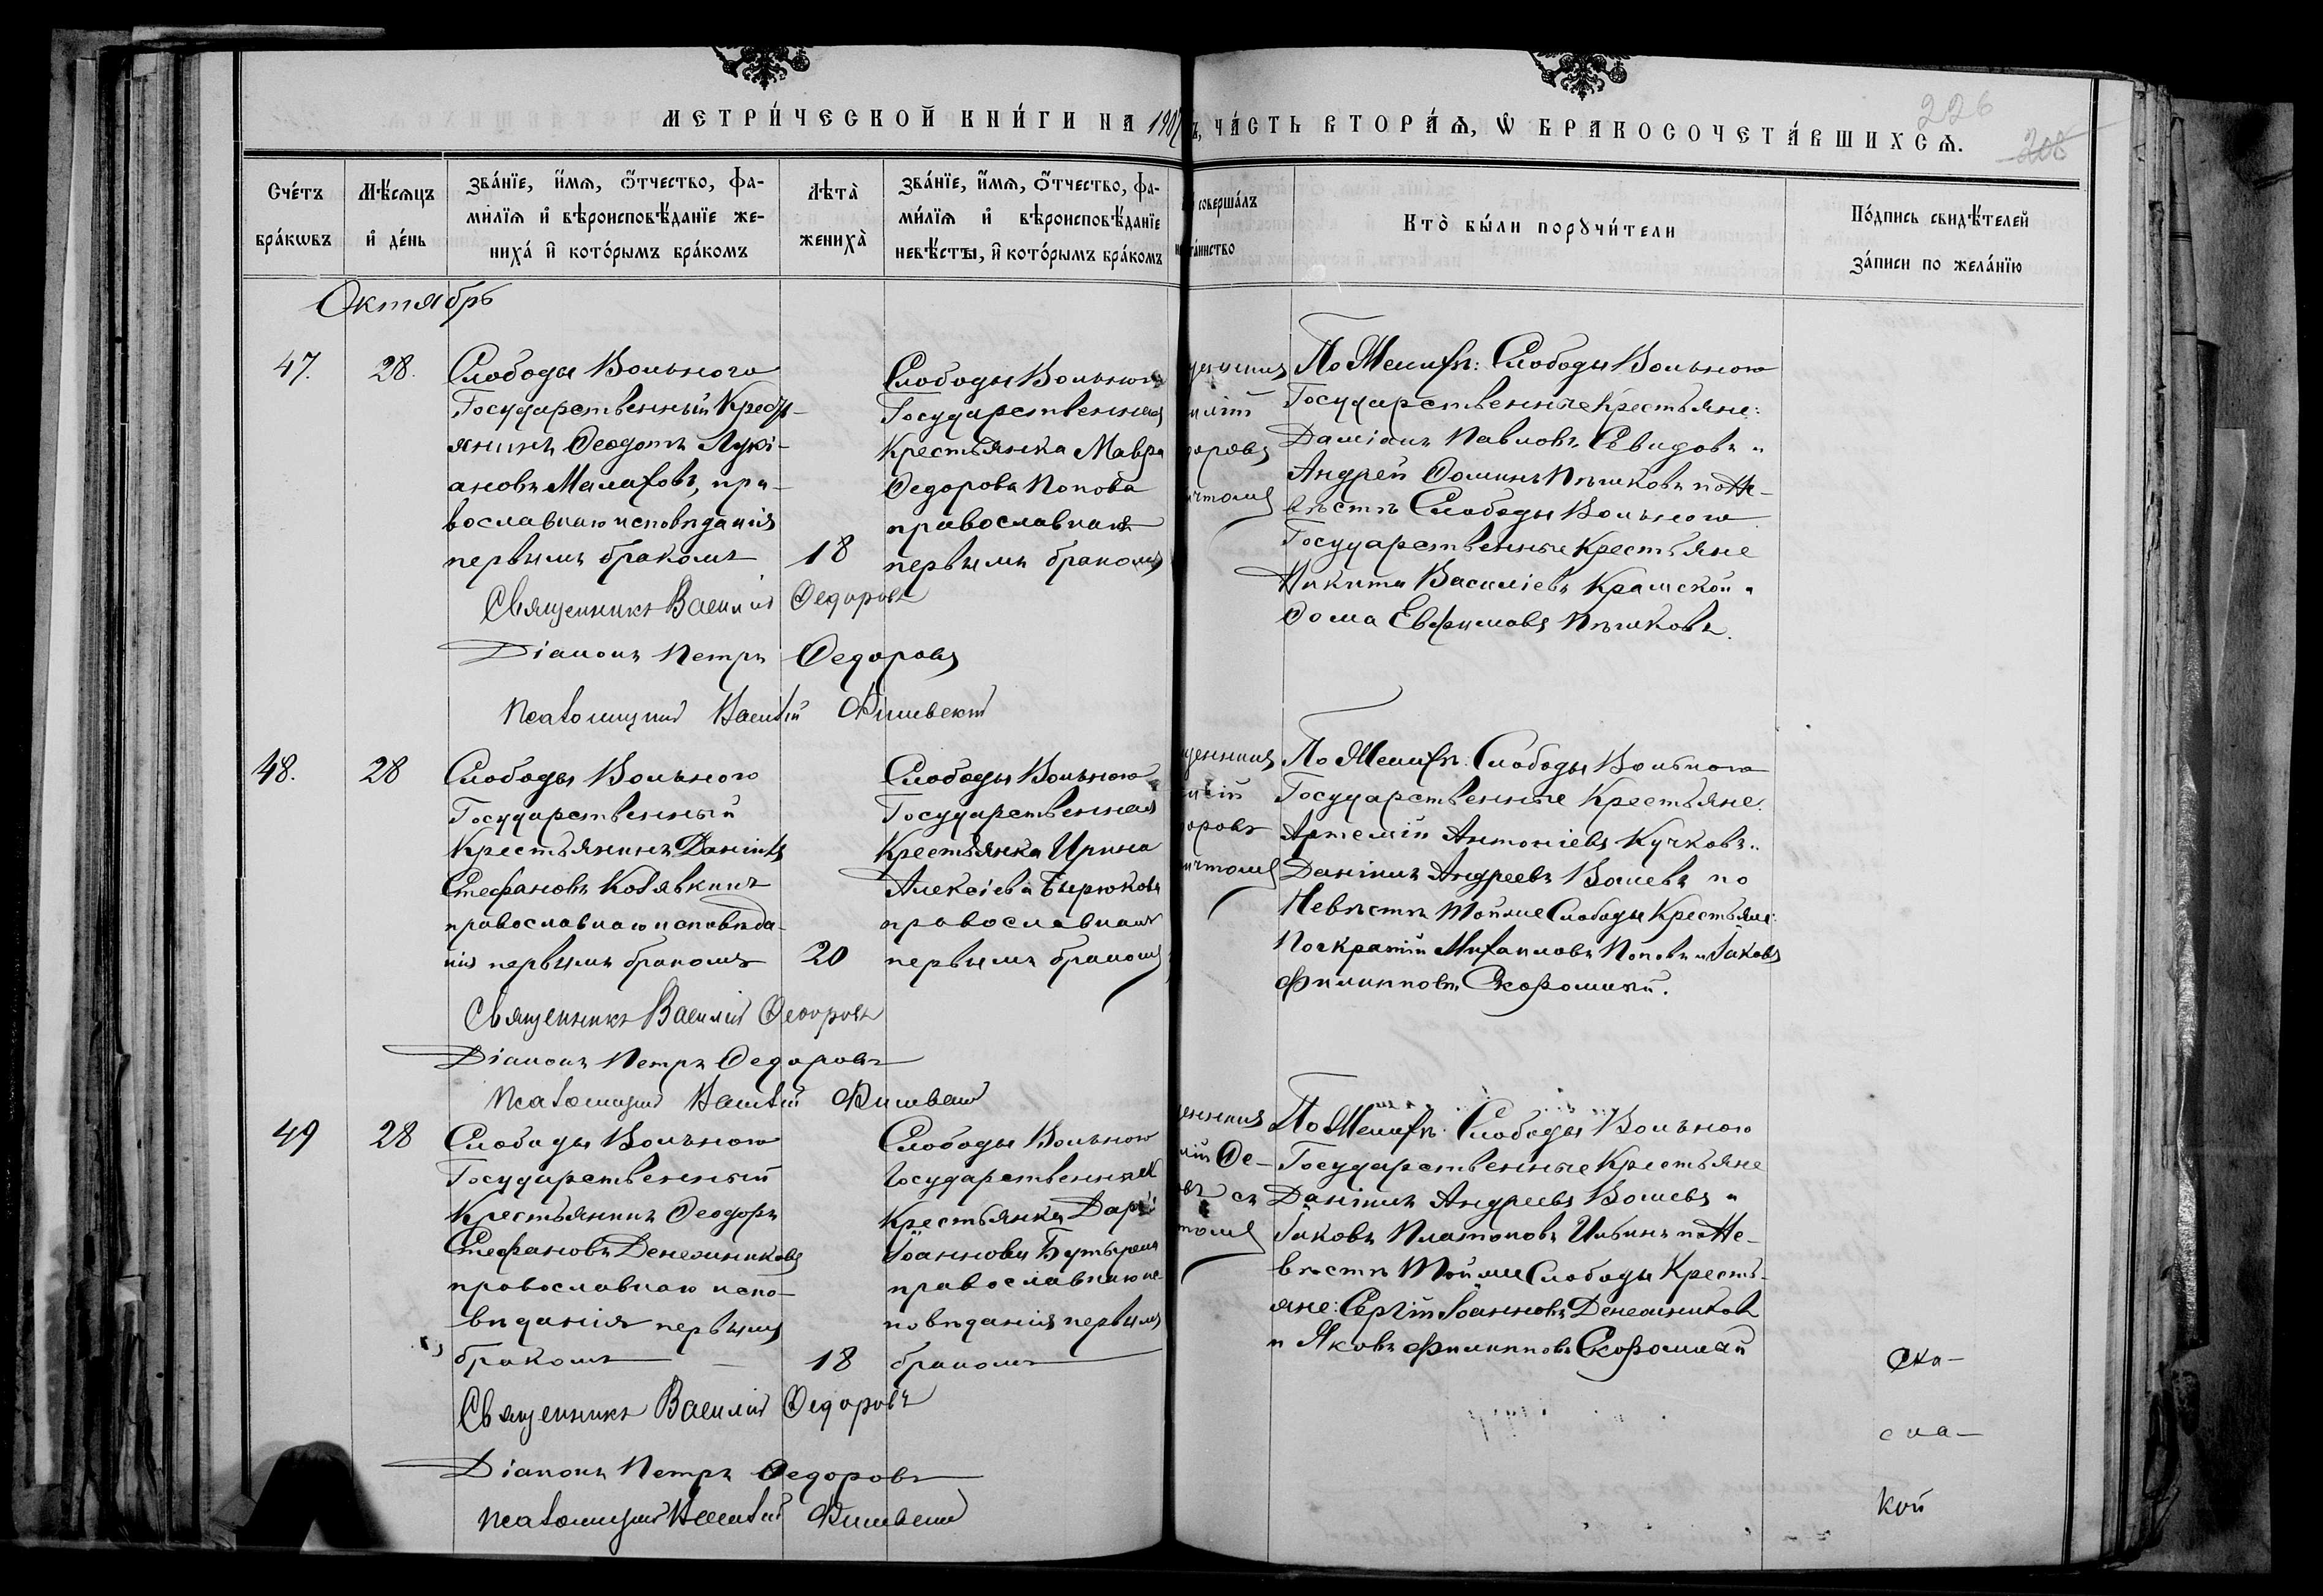 МЕТРИ́ЧЕСКОЙ КНИ́ГИ НА 190
Ъ, ЧА́СТЬ ВТОРА́Ѧ, Ѡ҆ БРАКОСОЧЕТА́ВШИХСѦ.
226
208
Сче́тъ бра́кѡвъ
Мѣ́сѧцъ и҆ де́нь
Зва́нїе, и҆́мѧ, ѻ҆́тчество, фа-
ми́лїѧ и҆ вѣроисповѣ́данїе же-
ниха́ и҆ кото́рымъ бра́комъ
Лѣта̀ жениха̀
Зва́нїе, и҆́мѧ, ѻ҆́тчество, фа-
ми́лїѧ и҆ вѣроисповѣ́данїе
невѣ́сты, и҆ кото́рымъ бра́комъ
соверша́лъ
та́инство
Кто̀ бы́ли порꙋчи́тели
По́дпись свидѣ́телей
за́писи по жела́нїю
Октябрь
47.
28.
Слободы Вольного
Государственный Крест-
янинъ Ѳеодотъ Лукі-
ановъ Малаховъ, пра-
вославнаго исповѣданія
первымъ бракомъ
18
Слободы Вольного
Государственная
Крестьянка Мавра
Ѳедорова Попова
православная
первымъ бракомъ
По Женихѣ: Слободы Вольного
Государственные Крестьяне:
Даміанъ Павловъ Севидовъ и
Андрей Ѳоминъ Пѣшковъ по Не-
вѣстѣ Слободы Вольного
Государственные Крестьяне
Никита Василіевъ Крамской и
Ѳома Евфимовъ Пѣшковъ.
Священникъ Василій Ѳедоровъ
Діаконъ Петръ Ѳедоровъ
Псаломщикъ
48.
28
Слободы Вольного
Государственный
Крестьянинъ Даніилъ
Стефановъ Кобявкинъ
православнаго исповѣда-
нія первымъ бракомъ
20
Слободы Вольного
Государственная
Крестьянка Ирина
Алексіева Бирюкова
православная
первымъ бракомъ
По Женихѣ: Слободы Вольного
Государственные Крестьяне:
Артемій Антоніевъ Кучковъ и
Даніилъ Андреевъ Вошевъ по
Невѣстѣ тойже Слободы Крестьяне:
Панкратій Михаиловъ Поповъ и Іаковъ
Филипповъ Скоромный.
Священникъ Василій Ѳедоровъ
Діаконъ Петръ Ѳедоровъ
Псаломщикъ
49
28
Слободы Вольного
Государственный
Крестьянинъ Ѳеодоръ
Стефановъ Денежниковъ
православнаго испо-
вѣданія первымъ
бракомъ
18
Слободы Вольного
Государственная
Крестьянка
Іоаннова
православнаго ис-
повѣданія первымъ
бракомъ
По Женихѣ: Слободы Вольного
Государственные Крестьяне
Даніилъ Андреевъ Вошевъ и
Іаковъ Платоновъ Ильинъ по Не-
вѣстѣ тойже Слободы Кресть-
яне: Сергій Іоанновъ Денежниковъ
и Яковъ Филипповъ Скоромный
Священникъ Василій Ѳедоровъ
Діаконъ Петръ Ѳедоровъ
Псаломщикъ
Ска-
сна-
кой